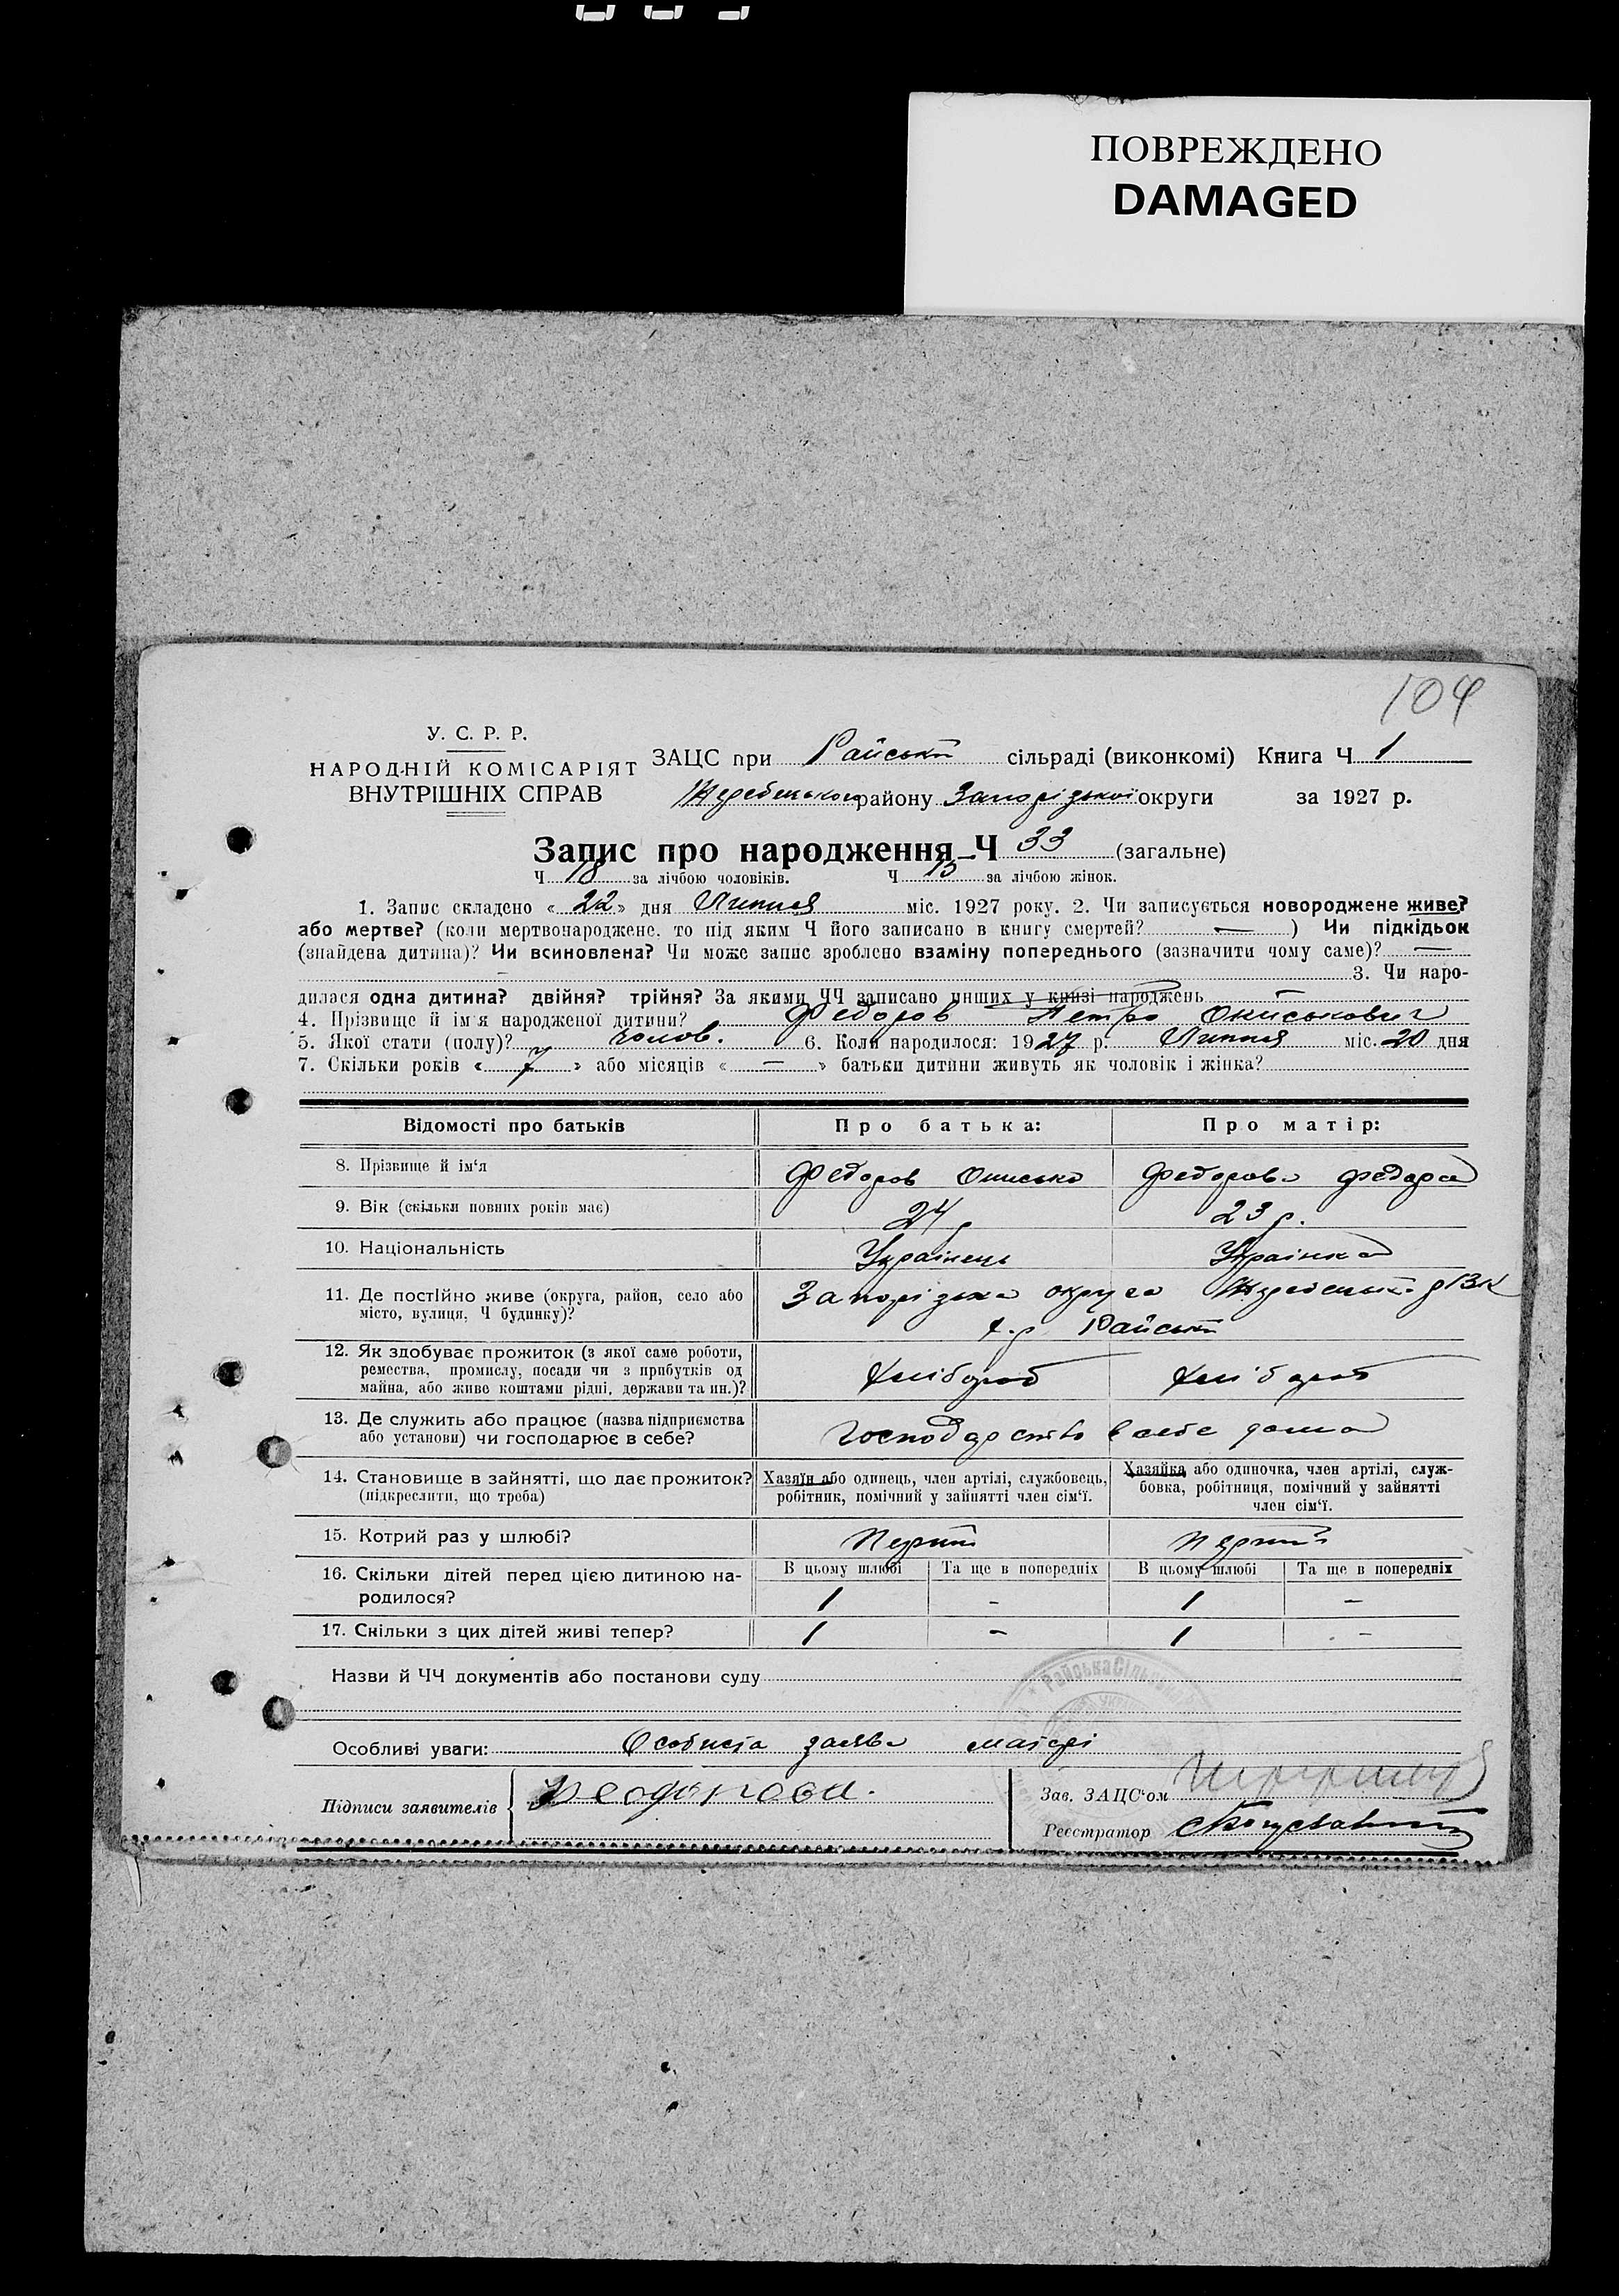 ПОВРЕЖДЕНО
DAMAGED
104
У. С. Р. Р.
НАРОДНІЙ КОМІСАРІЯТ
ВНУТРІШНІХ СПРАВ
ЗАЦС при Райській сільраді (виконкомі) Книга Ч 1
Жеребецького району Запорізької округи за 1927 р.
Запис про народження Ч 33 (загальне)
Ч 18 за лічбою чоловіків. Ч 15 за лічбою жінок.
1. Запис складено « 22 » дня Липня міс. 1927 року. 2. Чи записується новороджене живе?
або мертве? (коли мертвонароджене, то під яким Ч його записано в книгу смертей? — ) Чи підкідьок
(знайдена дитина)? Чи всиновлена? Чи може запис зроблено взаміну попереднього (зазначити чому саме)? —
— 3. Чи наро-
дилася одна дитина? двійня? трійня? За якими ЧЧ записано инших у книзі народжень —
4. Прізвище й ім'я народженої дитини? Федоров Петро Ониськович
5. Якої стати (полу)? чолов. 6. Коли народилося: 1927 р. Липня міс. 20 дня
7. Скільки років « » або місяців « — » батьки дитини живуть як чоловік і жінка?
Відомості про батьків Про батька: Про матір:
8. Прізвище й ім'я Федоров Онисько Федорова Федора
9. Вік (скільки повних років має) 24 р 23 р.
10. Національність Українець Українка
11. Де постійно живе (округа, район, село або
місто, вулиця, Ч будинку)?
Запорізька округа Жеребецьк. РВК
Райськи
12. Як здобуває прожиток (з якої саме роботи,
ремества, промислу, посади чи з прибутків од
майна, або живе коштами рідні, держави та ин.)?
Хлібороб Хлібороб
13. Де служить або працює (назва підприємства
або установи) чи господарює в себе?
Господарство в себе дома
14. Становище в зайнятті, що дає прожиток?
(підкреслити, що треба)
Хазяїн або одинець, член артілі, службовець,
робітник, помічний у зайнятті член сім'ї.
Хазяйка або одиночка, член артілі, служ-
бовка, робітниця, помічний у зайнятті
член сім'ї.
15. Котрий раз у шлюбі? Перший Перший
16. Скільки дітей перед цією дитиною на-
родилося?
В цьому шлюбі Та ще в попередніх В цьому шлюбі Та ще в попередніх
1 - 1 -
17. Скільки з цих дітей живі тепер? 1 - 1 -
Назви й ЧЧ документів або постанови суду
Райська Сільс
Особливі уваги: Особиста заява матері
Підписи заявителів
Зав. ЗАЦС'ом
Реєстратор